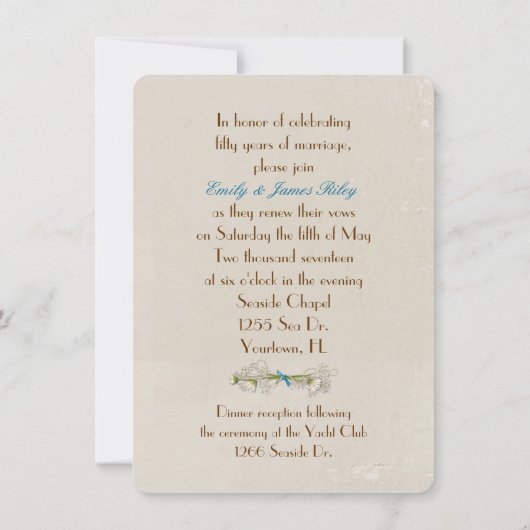 In honor of celebrating
fifty years of marriage,
please join
Emily & James Riley
as they renew their vows
on Saturday the fifth of May
Two thousand seventeen
at six o'clock in the evening
Seaside Chapel
1255 Sea Dr.
Yourtown, FL
Dinner reception following
the ceremony at the Yacht Club
1266 Seaside Dr.